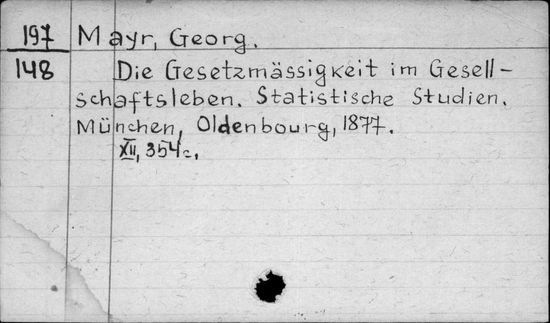 197 Mayr, Georg.
148 Die Gesetzmässigkeit im Gesell-
schaftsleben. Statistische Studien.
München, Oldenbourg, 1877.
XII, 354 c.